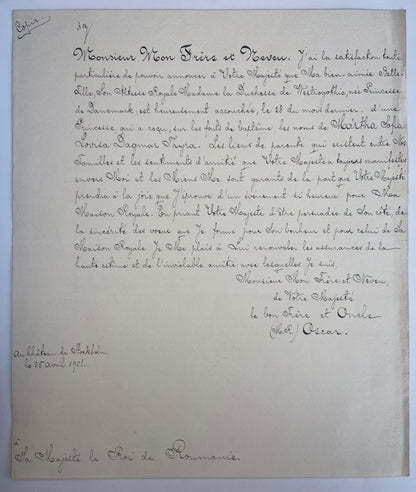 Copie.
Monsieur Mon Frère et Neveu. J'ai la satisfaction toute
particulière de pouvoir annoncer à Votre Majesté que Ma bien-aimée Belle-
Fille, Son Altesse Royale Madame la Duchesse de Westrogothie, née Princesse
de Danemark, est heureusement accouchée, le 28 du mois dernier, d'une
Princesse qui a reçu, sur les fonts de baptême, les noms de Märtha Sofia
Lovisa Dagmar Thyra. Les liens de parenté qui existent entre Nos
Familles et les sentiments d'amitié que Votre Majesté a toujours manifestés
envers Moi et les Miens Me sont garants de la part que Votre Majesté
prendra à la joie que J'éprouve d'un évènement si heureux pour Ma
Maison Royale. En priant Votre Majesté d'être persuadée de Son côté de
la sincérité des voeux que Je forme pour Son bonheur et pour celui de Sa
Maison Royale Je Me plais à Lui renouveler les assurances de la
haute estime et de l'inviolable amitié avec lesquelles Je suis,
Monsieur Mon Frère et Neveu,
de Votre Majesté
le bon Frère et Oncle
Oscar.
Au Château de Stockholm,
le 25 avril 1901.
à
Sa Majesté le Roi de Roumanie.